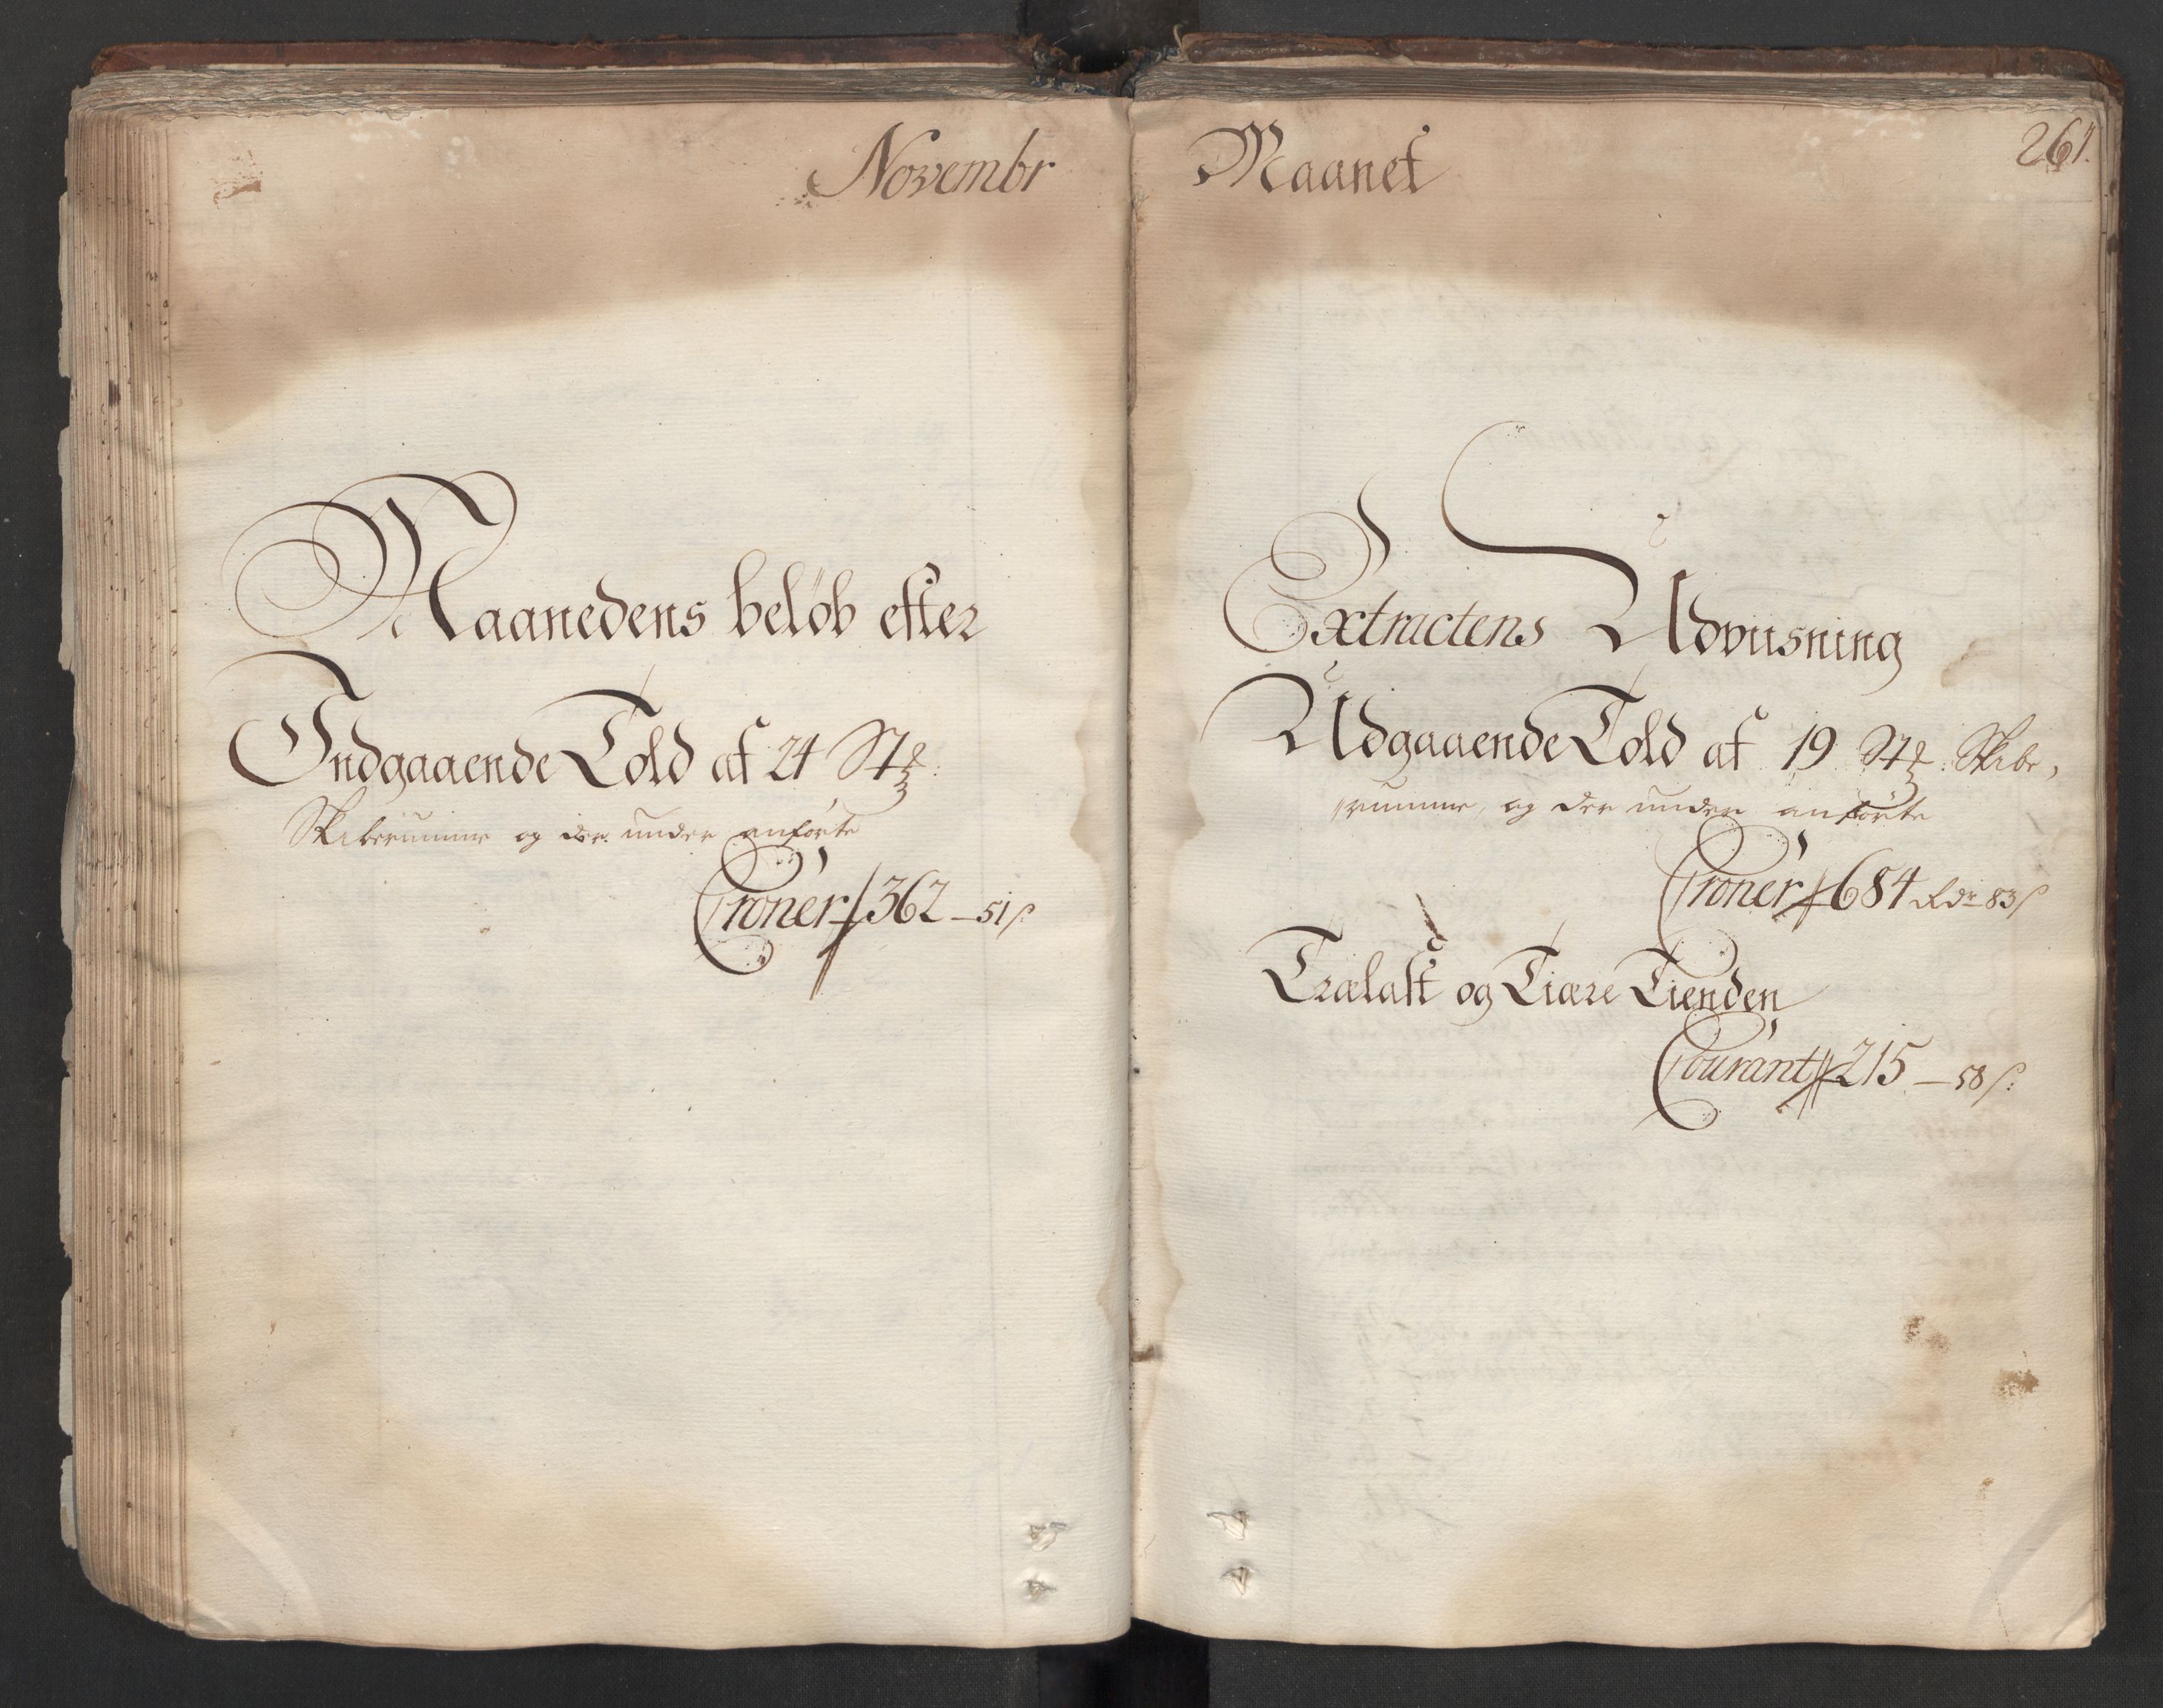 Novembr
Maanedens beløb efter
Indgaaende Told af 24 Stk:
Skibsrumme og der under anførte
Croner 362 – 51 ß.
Maanet
261.
Extractens Udviisning
Udgaaende Told af 19 Stk. Skibs,
rumme, og der under anførte
Croner 684 Rdr 83 ß
Trælast og Tiære Tienden
Courant 215 – 58 ß.